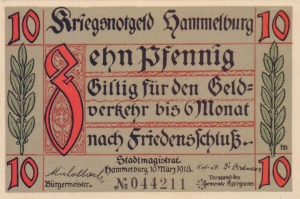 10 Kriegsnotgeld Hammelburg 10
Zehn Pfennig
Giltig für den Geld-
verkehr bis 6 Monat
nach Friedensschluß.
Stadtmagistrat.
Hammelburg, 10. März 1918.
Bürgermeister.
Vorstand des
Gemeinde Kollegiums
10 № 044211 10